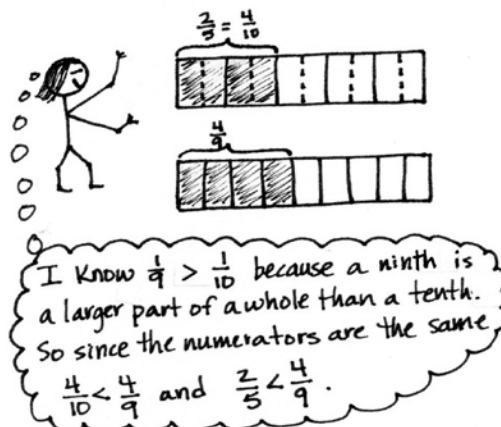 2/5 = 4/10
4/9
I know 1/9 > 1/10 because a ninth is
a larger part of a whole than a tenth.
So since the numerators are the same,
4/10 < 4/9 and 2/5 < 4/9.